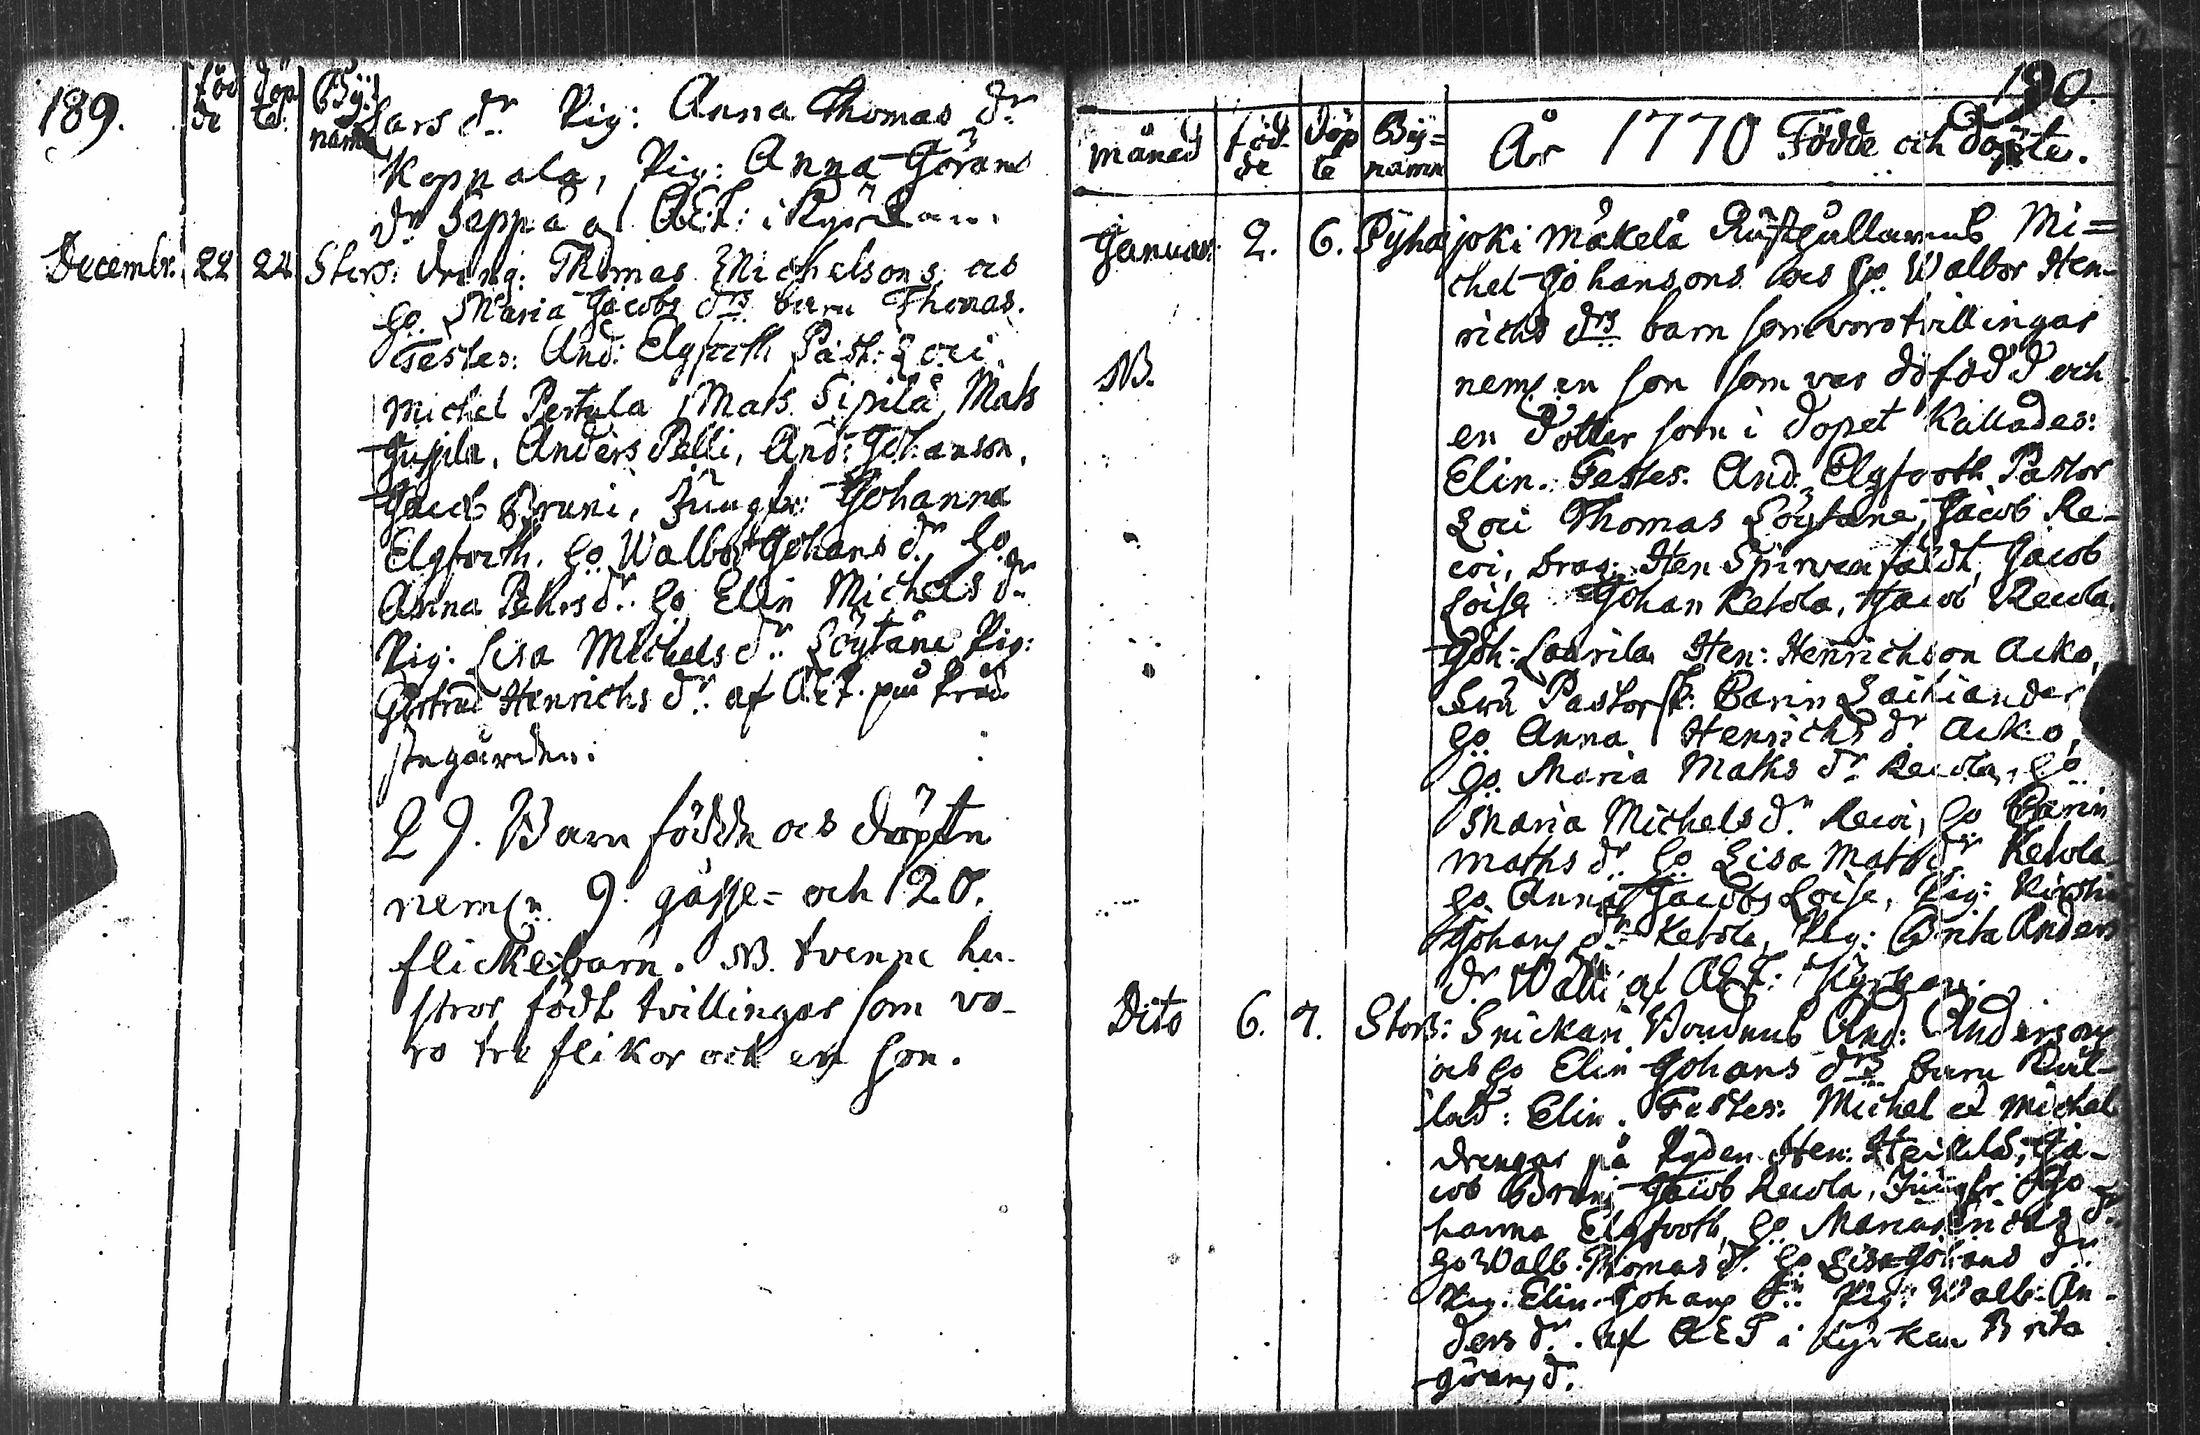 189.
föd de
döp te.
By: namn
Lars dr. Pig: Anna Thomas dr
Koppala, Pig: Anna Görans
dr Seppä af AET: i Kyrkan.
Decembr. 22 22 Storb: dreng: Thomas Michelsons och
Ho. Maria Jacobs drs barn Thomas.
Testes: And: Elgfooth Past: Loci.
Michel Pertula, Mats Sipilä, Mats
Juppila, Anders Pelli, And: Johanson,
Jacob Bruni, Jungfr: Johanna
Elgforth. Ho Walbor Johans dr, Ho
Anna Pehrs dr. Ho Elin Michels dr
Pig: Lisa Michels dr. Löytäne Pig:
Gertrud Henrichs dr. af AET. på Präd-
stegården:
29. Barn födde och döpte
neml. 9. gåsse- och 20.
flickebarn. NB. tvenne hu-
stror födt tvillingar som vo-
ro tre flikor och en son.
190.
månad
föd de
döp te
By= namn
År 1770 Födde och döpte.
Januar. 2. 6. Pyhäjoki Mäkelä Rustgullarens Mi=
chel Johansons och Ho. Walbor Hen-
richs drs barn som voro tvillingar
NB.
neml. en son som var döfödd och
en dotter som i dopet Kallades:
Elin. Testes. And. Elgfooth Pastor
Loci Thomas Löytäne, Jacob Re-
coi, Drag: Hen Spirvenfäldt, Jacob
Loise Johan Ketola, Jacob Recola.
Joh: Laurila Hen: Henrichson Acko,
Fru Pastorsk: Carin Laihiander
Ho Anna Henrichs dr Acko,
Ho Maria Maths dr Recola, Ho
Maria Michels dr. Recoi, Ho Carin
Maths dr. Ho Lisa Mats dr Ketola
Ho. Anna Jacobs Loise, Pig: Kirstin
Johans dr Ketola, Pig: Brita Anders
dr Walli af AET: i Kyrkan.
Dito 6. 7. Storb: Snickari Bondens And: Andersons
och Ho Elin Johans drs barn Kal-
lad: Elin. Testes: Michel et Michel
drengar på Ryden Hen: Heikilä, Ja-
cob Bruni Jacob Recola, Jungfr. Jo
hanna Elgfooth, Ho. Maria dr.
Ho Walb: Thomas dr. Ho Lisa Johans dr.
Pig. Elin Johans dr. Pig: Walb: An-
ders dr. af AET i Kyrkan Brita
Görans dr.